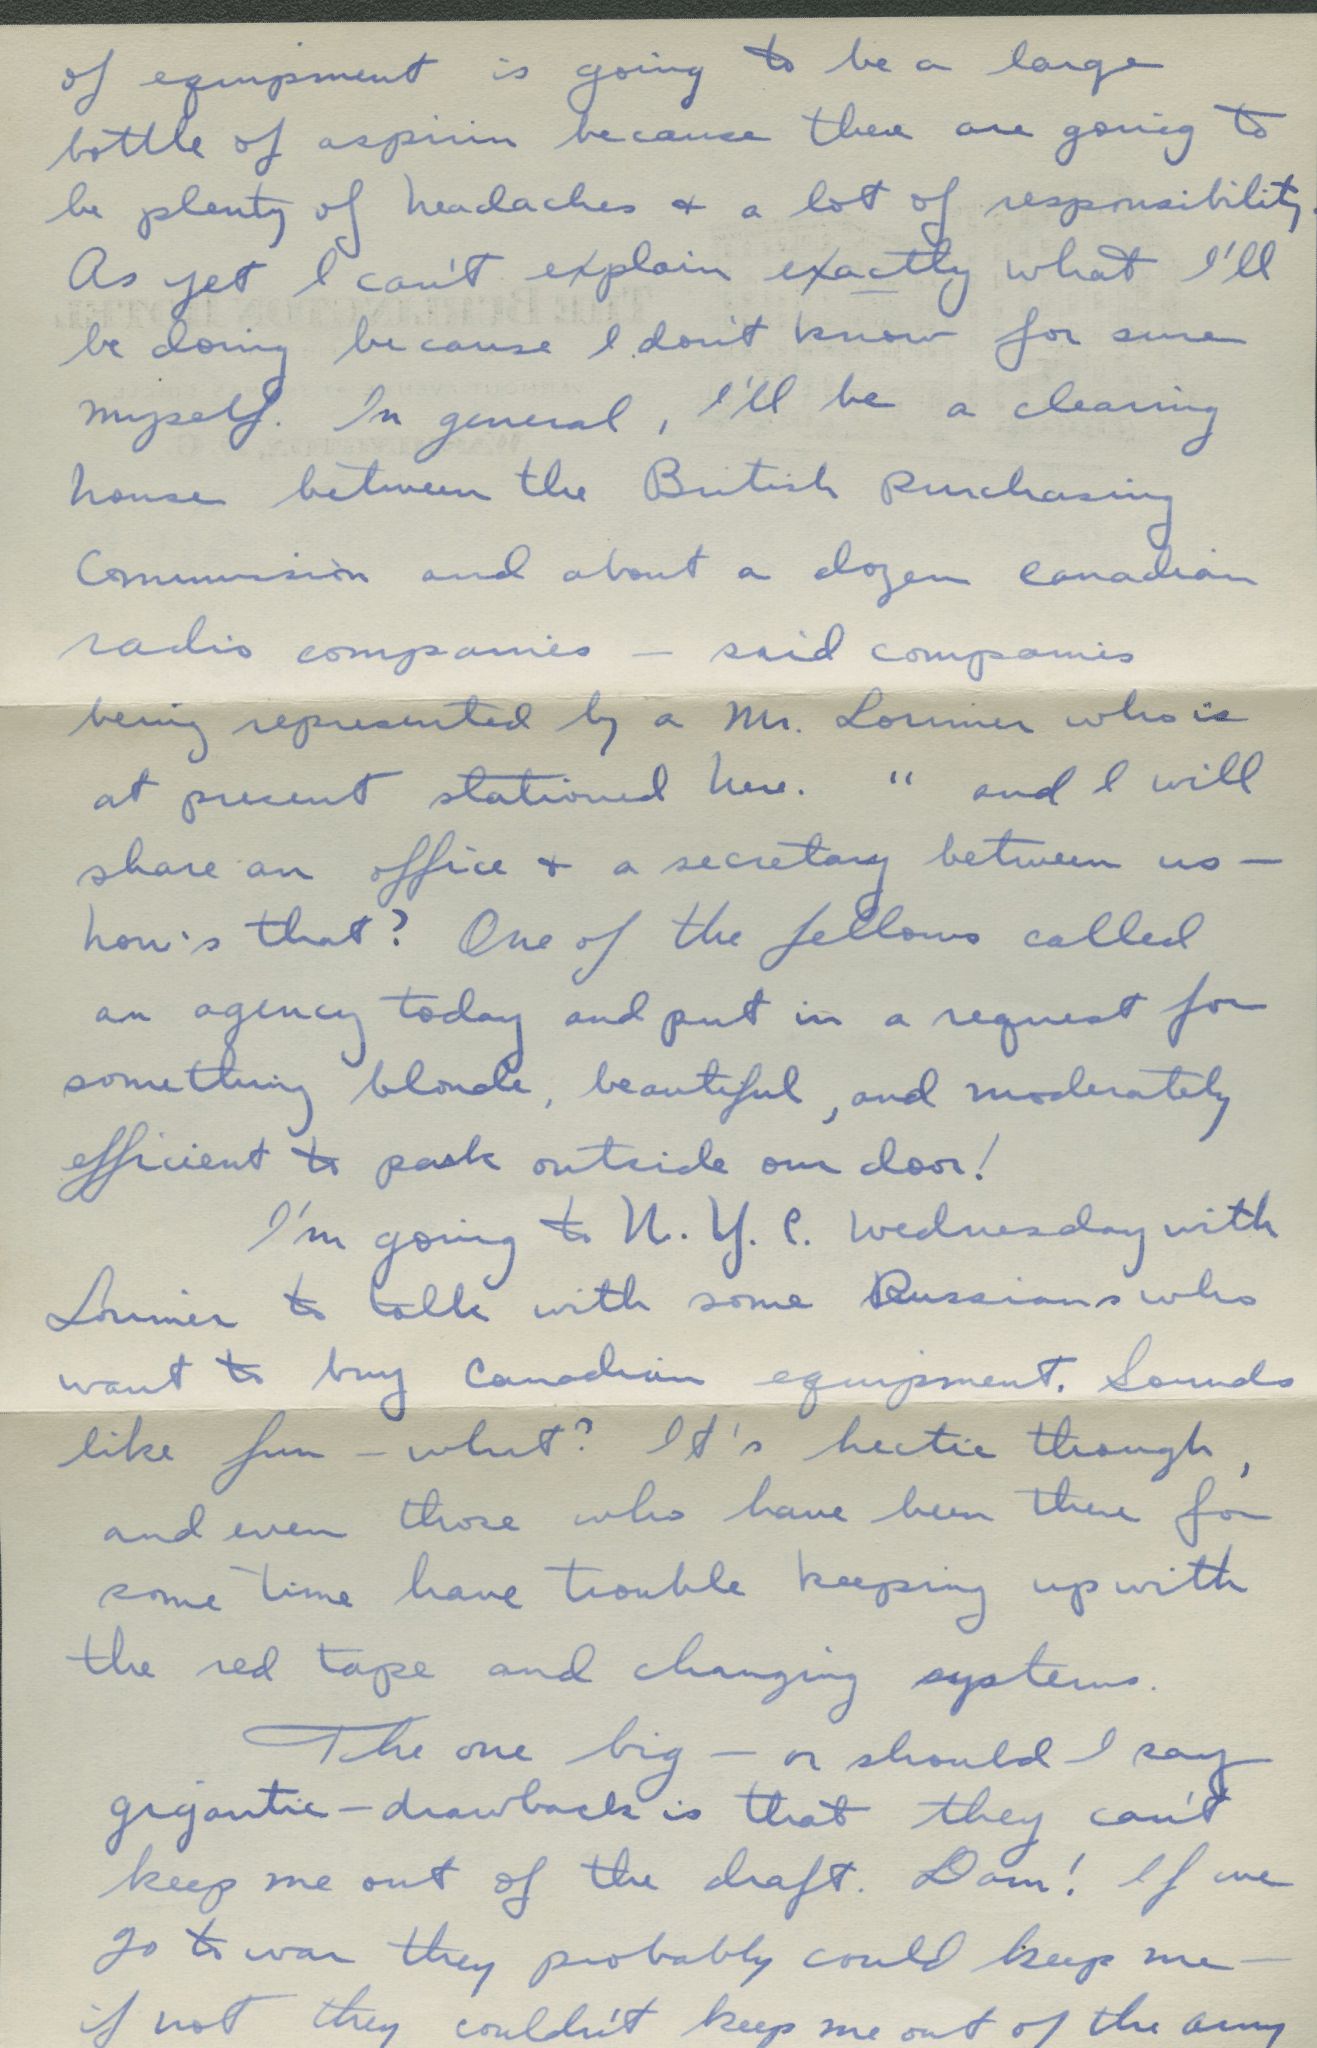 of equipment is going to be a large
bottle of aspirin because there are going to
be plenty of headaches & a lot of responsibility.
As yet I can't explain exactly what I'll
be doing because I don't know for sure
myself. In general, I'll be a clearing
house between the British Purchasing
Commission and about a dozen Canadian
radio companies – said companies
being represented by a Mr. Lorimer who is
at present stationed here. " and I will
share an office & a secretary between us –
how's that? One of the fellows called
an agency today and put in a request for
something blonde, beautiful, and moderately
efficient to park outside our door!
I'm going to N.Y.C. Wednesday with
Lorimer to talk with some Russians who
want to buy Canadian equipment. Sounds
like fun – what? It's hectic though,
and even those who have been there for
some time have trouble keeping up with
the red tape and changing systems.
The one big – or should I say
gigantic – drawback is that they can't
keep me out of the draft. Dam! If we
go to war they probably could keep me –
if not they couldn't keep me out of the army